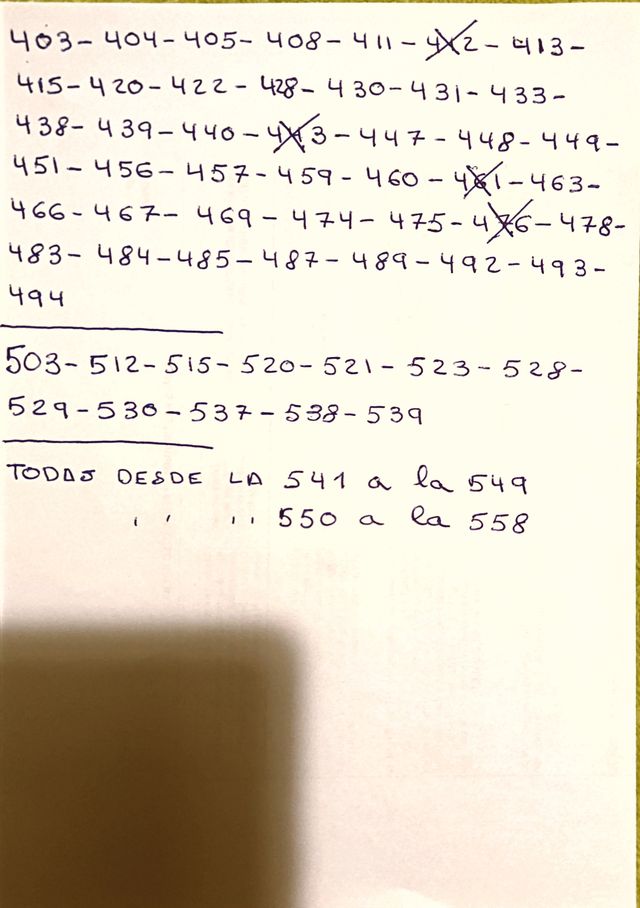 403-404-405-408-411-412-413-
415-420-422-428-430-431-433-
438-439-440-443-447-448-449-
451-456-457-459-460-461-463-
466-467-469-474-475-476-478-
483-484-485-487-489-492-493-
494
503-512-515-520-521-523-528-
529-530-537-538-539
TODAS DESDE LA 541 a la 549
" " 550 a la 558